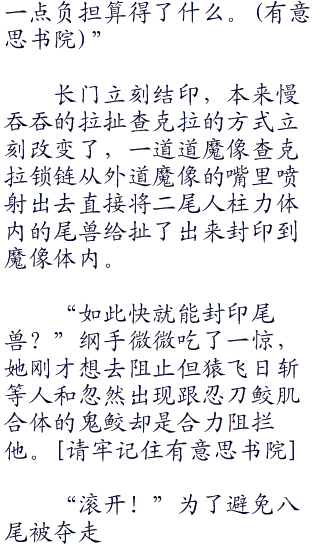 一点负担算得了什么。(有意
思书院)”
长门立刻结印，本来慢
吞吞的拉扯查克拉的方式立
刻改变了，一道道魔像查克
拉锁链从外道魔像的嘴里喷
射出去直接将二尾人柱力体
内的尾兽给扯了出来封印到
魔像体内。
“如此快就能封印尾
兽？”纲手微微吃了一惊，
她刚才想去阻止但猿飞日斩
等人和忽然出现跟忍刀鲛肌
合体的鬼鲛却是合力阻拦
他。[请牢记住有意思书院]
“滚开！”为了避免八
尾被夺走